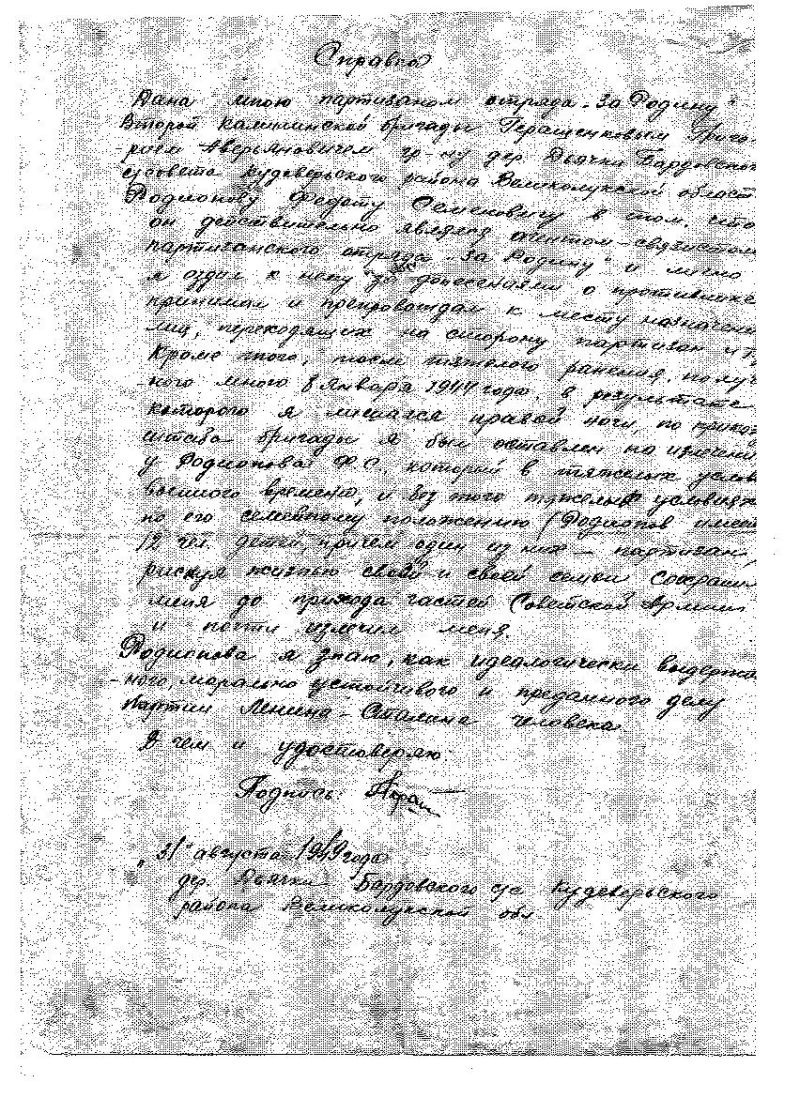 Справка
Дана мною партизаном отряда „За Родину"
Второй Калининской бригады Геращенковым Григо-
-рием Аверьяновичем гр-ну дер. Дьячки Бардовского
с/совета Кудеверьского района Великолукской област
Родионову Федоту Семеновичу в том, что
он действительно являлся агентом-связистом
партизанского отряда „За Родину" и лично
я ездил к нему за донесениями о противнике
принимал и препровождал к месту назначени
лиц, переходящих на сторону партизан и т.
Кроме того, после тяжелого ранения, получ
-ного мною 8 января 1944 года, в результате
которого я лишился правой ноги, по приказ
штаба бригады я был оставлен на излечени
у Родионова Ф.С., который в тяжелых услов
военного времени, и без того тяжелых условиях
по его семейному положению (Родионов имеет
12 чел. детей, причем один из них – партизан,
рискуя жизнью своей и своей семьи сохрани
меня до прихода частей Советской Армии
и почти излечил меня.
Родионова я знаю, как идеологически выдержа
-ного, морально устойчивого и преданного делу
партии Ленина-Сталина человека
В чем и удостоверяю
Подпись:
„31" августа 1949 года
дер. Дьячки Бардовского с/с Кудеверьского
района Великолукской обл.